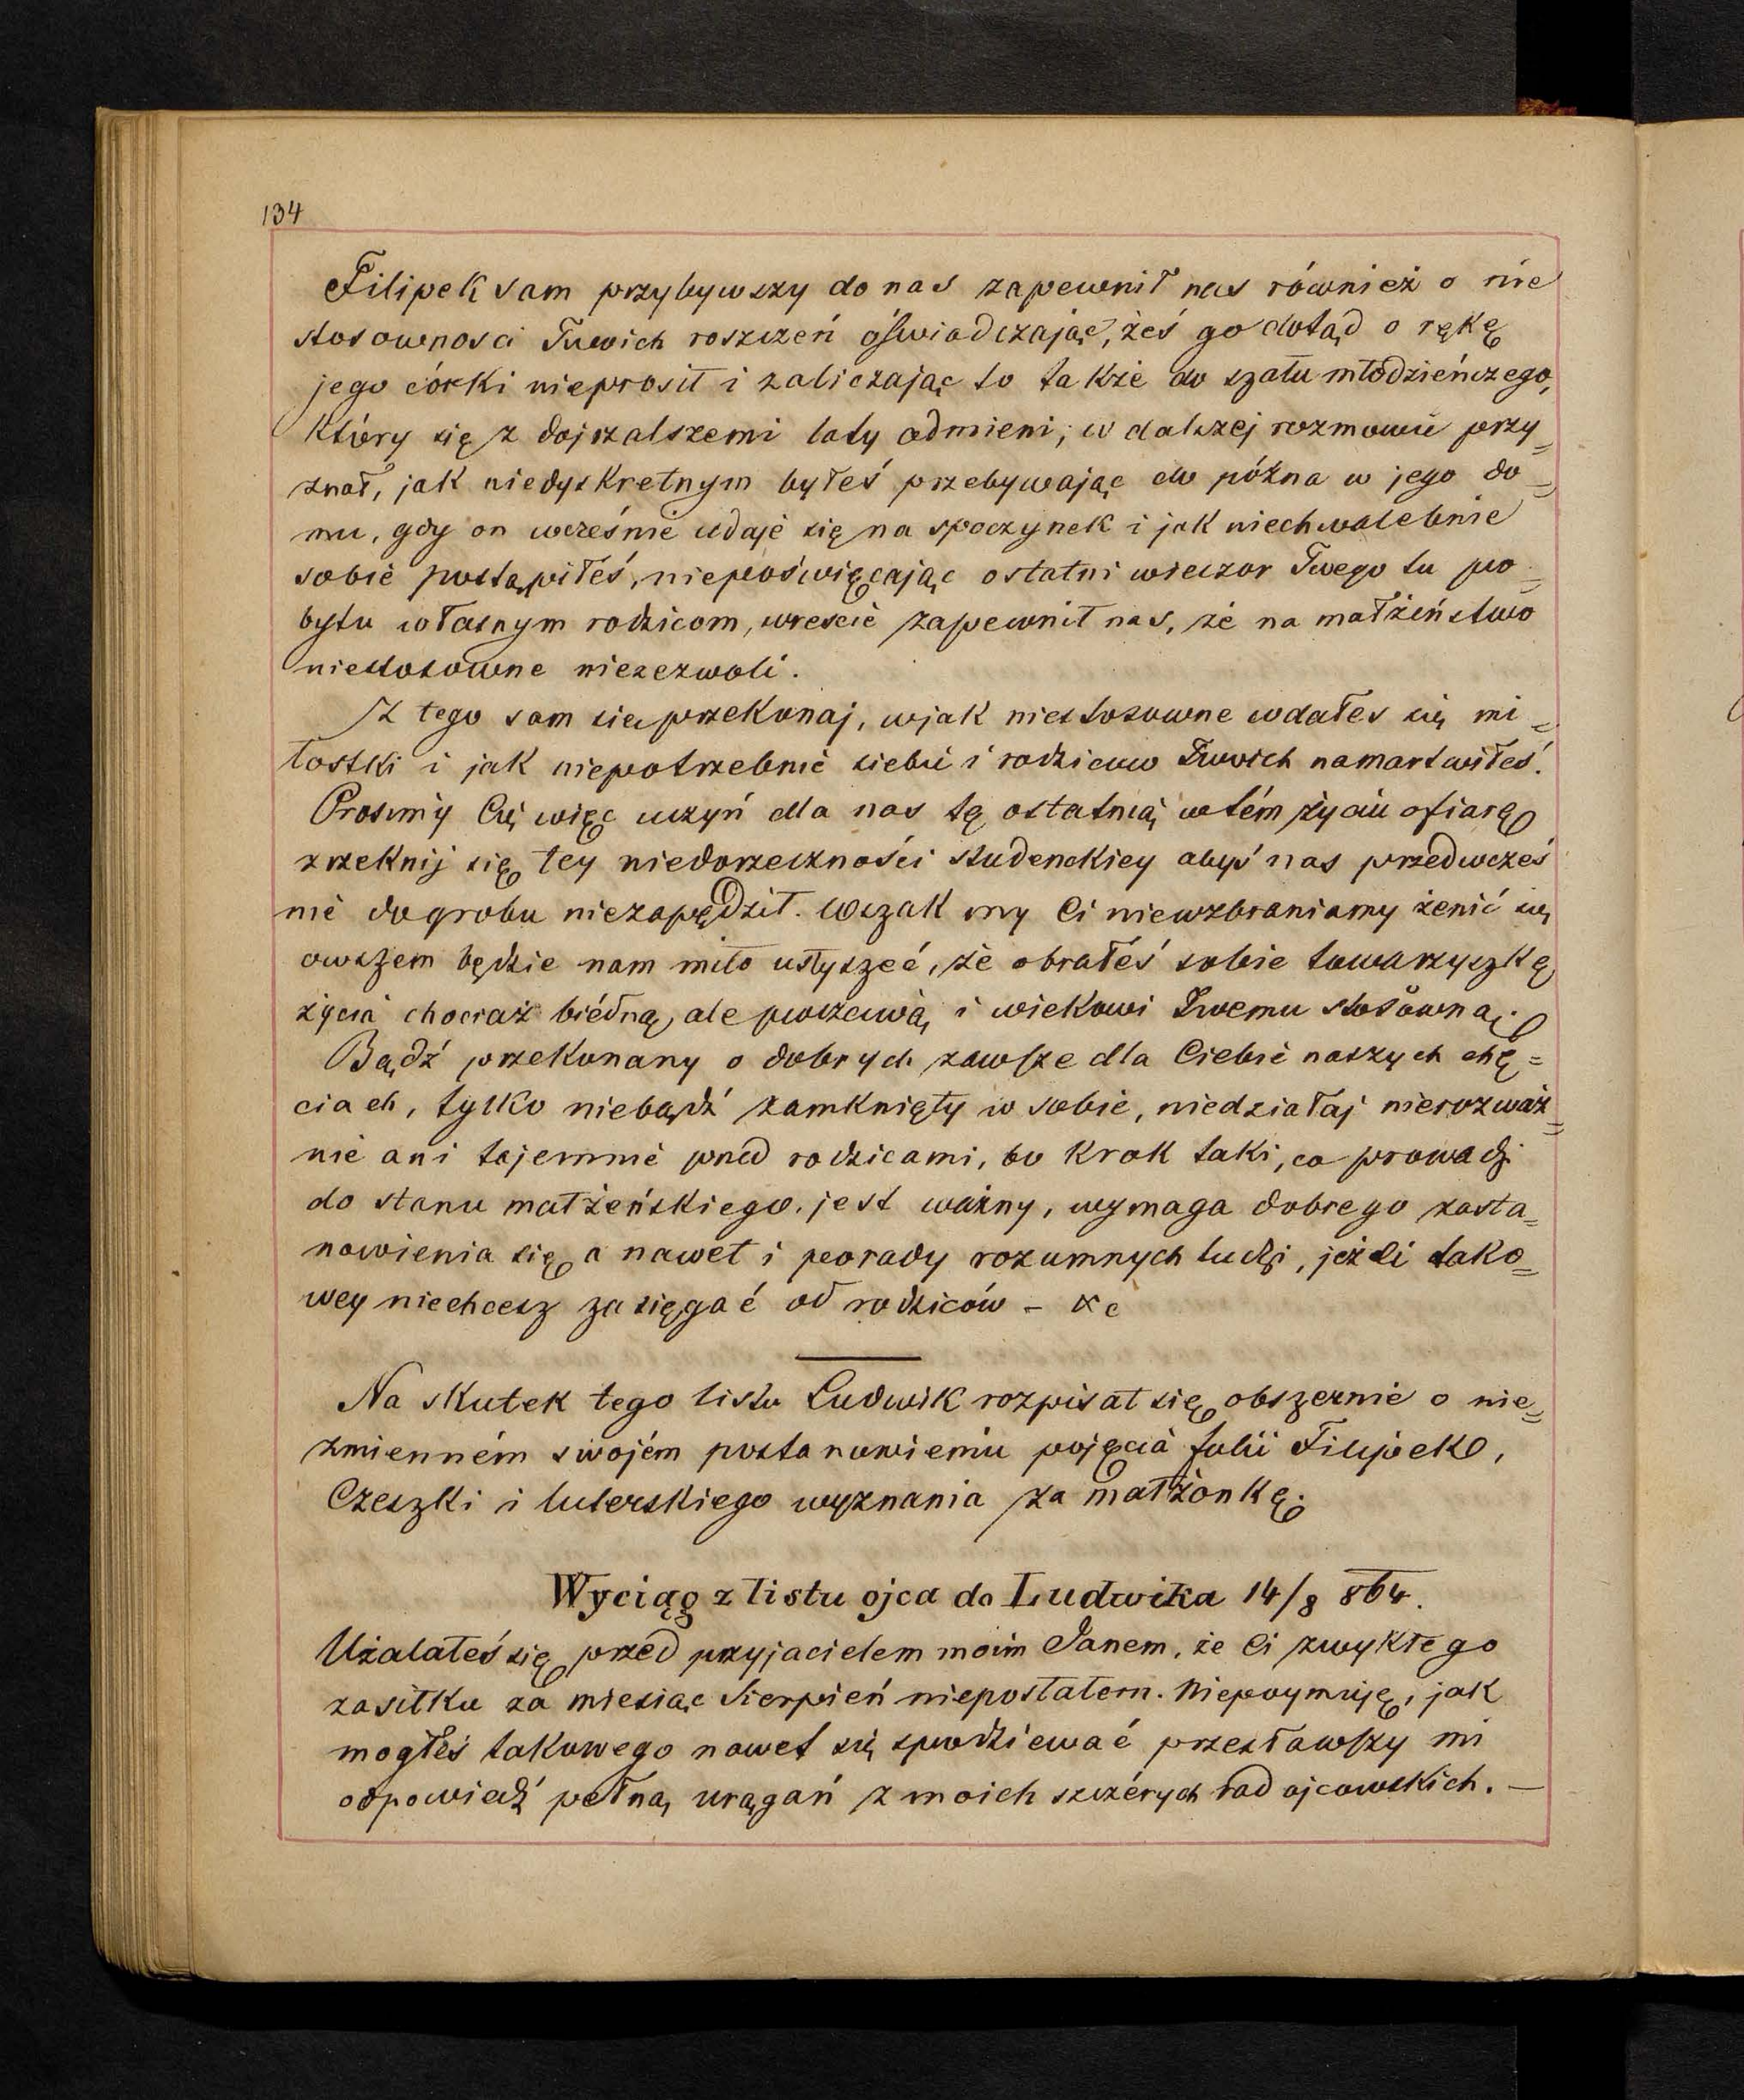 134
Filipek sam przybywszy do nas zapewnił nas również o nie
stosownosci Twoich roszczeń oświadczając, żeś go dotąd o rękę
jego córki nieprosił i zaliczając to także do szału młodzieńczego,
który się z dojrzalszemi laty odmieni; w dalszej rozmowie przy=
znał, jak niedyskretnym byłeś przebywając do późna w jego do=
mu, gdy on wcześnie udaje się na spoczynek i jak niechwalebnie
sobie postąpiłeś, niepoświęcając ostatni wieczor Twego tu po=
bytu własnym rodzicom, wrescie zapewnił nas, że na małżeństwo
niestosowne niezezwoli.
Z tego sam się przekonaj, w jak niestosowne wdałeś się mi=
łostki i jak niepotrzebnie siebie i rodziców Twoich namartwiłeś.
Prosimy Cię więc uczyń dla nas tę ostatnią w tém życiu ofiarę
zrzeknij się tey niedorzeczności studenckiey abyś nas przedwcześ
nie do grobu niezapędził. Wszak my Ci niewzbraniamy żenić się
owszem będzie nam miło usłyszeć, że obrałeś sobie towarzyszkę
życia chociaż biédną, ale poczciwą i wiekowi Twemu stosowną.
Bądź przekonany o dobrych zawsze dla Ciebie naszych chę=
ciach, tylko niebądź zamknięty w sobie, niedziałaj nierozważ=
nie ani tajemnie przed rodzicami, bo krok taki, co prowadzi
do stanu małżeńskiego, jest ważny, wymaga dobrego zasta=
nowienia się, a nawet i porady rozumnych ludzi, jeżeli tako=
wey niechcesz zasięgać od rodziców - &c
Na skutek tego listu Ludwik rozpisał się obszernie o nie=
zmienném swojém postanowieniu pojęcia Julii Filipek,
Czeszki i luterskiego wyznania za małżonkę.
Wyciąg z listu ojca do Ludwika 14/8 864.
Użalałeś się przed przyjacielem moim Janem, że Ci zwykłego
zasiłku za miesiąc Sierpień nieposłałem. Niepoymuję, jak
mogłeś takowego nawet się spodziewać przesławszy mi
odpowiedź pełną urągań z moich szczérych rad ojcowskich. —